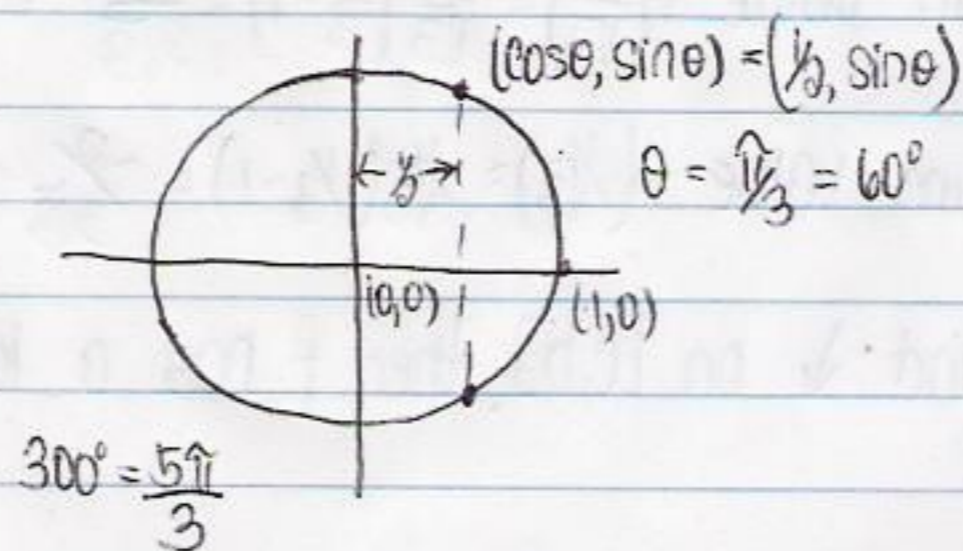 (cosθ, sinθ) = (1/2, sinθ)
1/2
θ = π/3 = 60°
(0,0)
(1,0)
300° = 5π/3